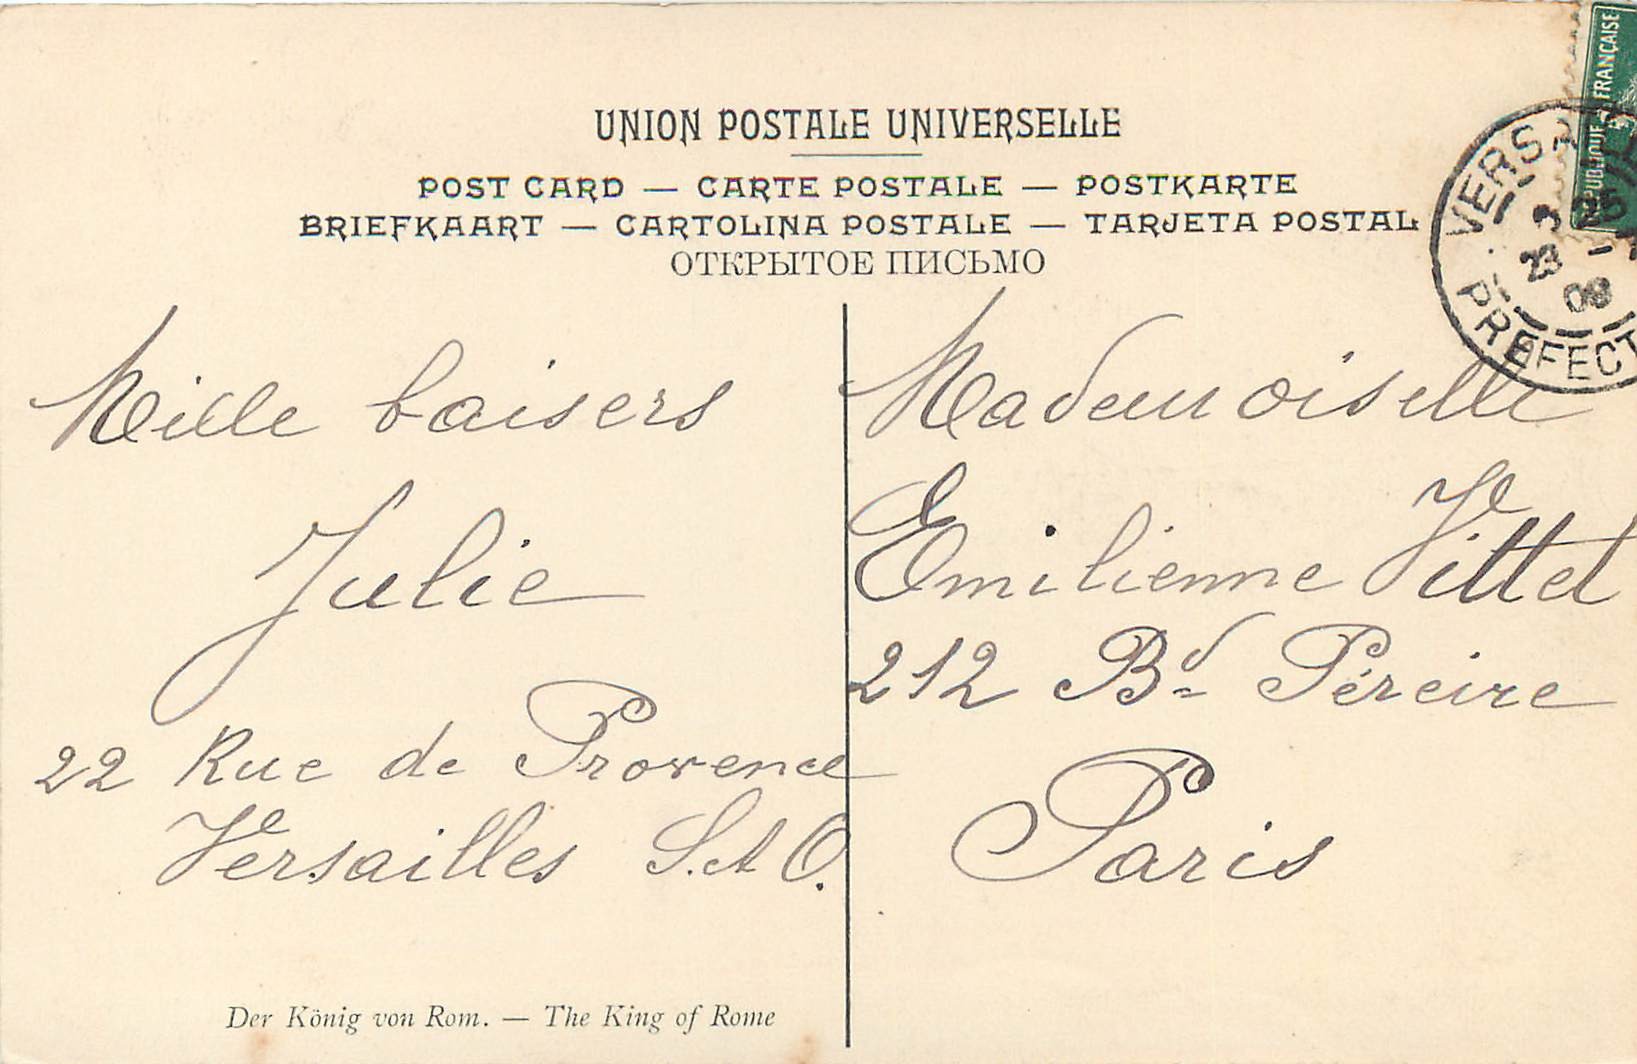 UNION POSTALE UNIVERSELLE
POST CARD — CARTE POSTALE — POSTKARTE
BRIEFKAART — CARTOLINA POSTALE — TARJETA POSTAL
ОТКРЫТОЕ ПИСЬМО
RÉPUBLIQUE FRANÇAISE
VERSA
23
09
PREFECT
Mille baisers
Julie
22 Rue de Provence
Versailles S. et O.
Mademoiselle
Emilienne Vittet
212 Bd Péreire
Paris
Der König von Rom. — The King of Rome